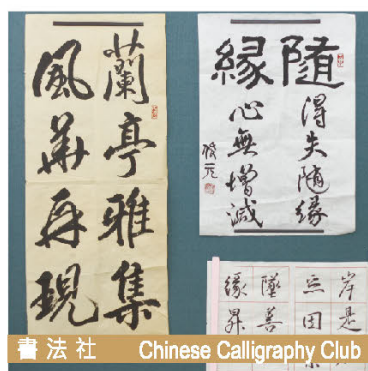 蘭亭雅集
風華再現
隨緣
得失隨緣
心無增減
岸是
墜善
緣昇
書法社 Chinese Calligraphy Club